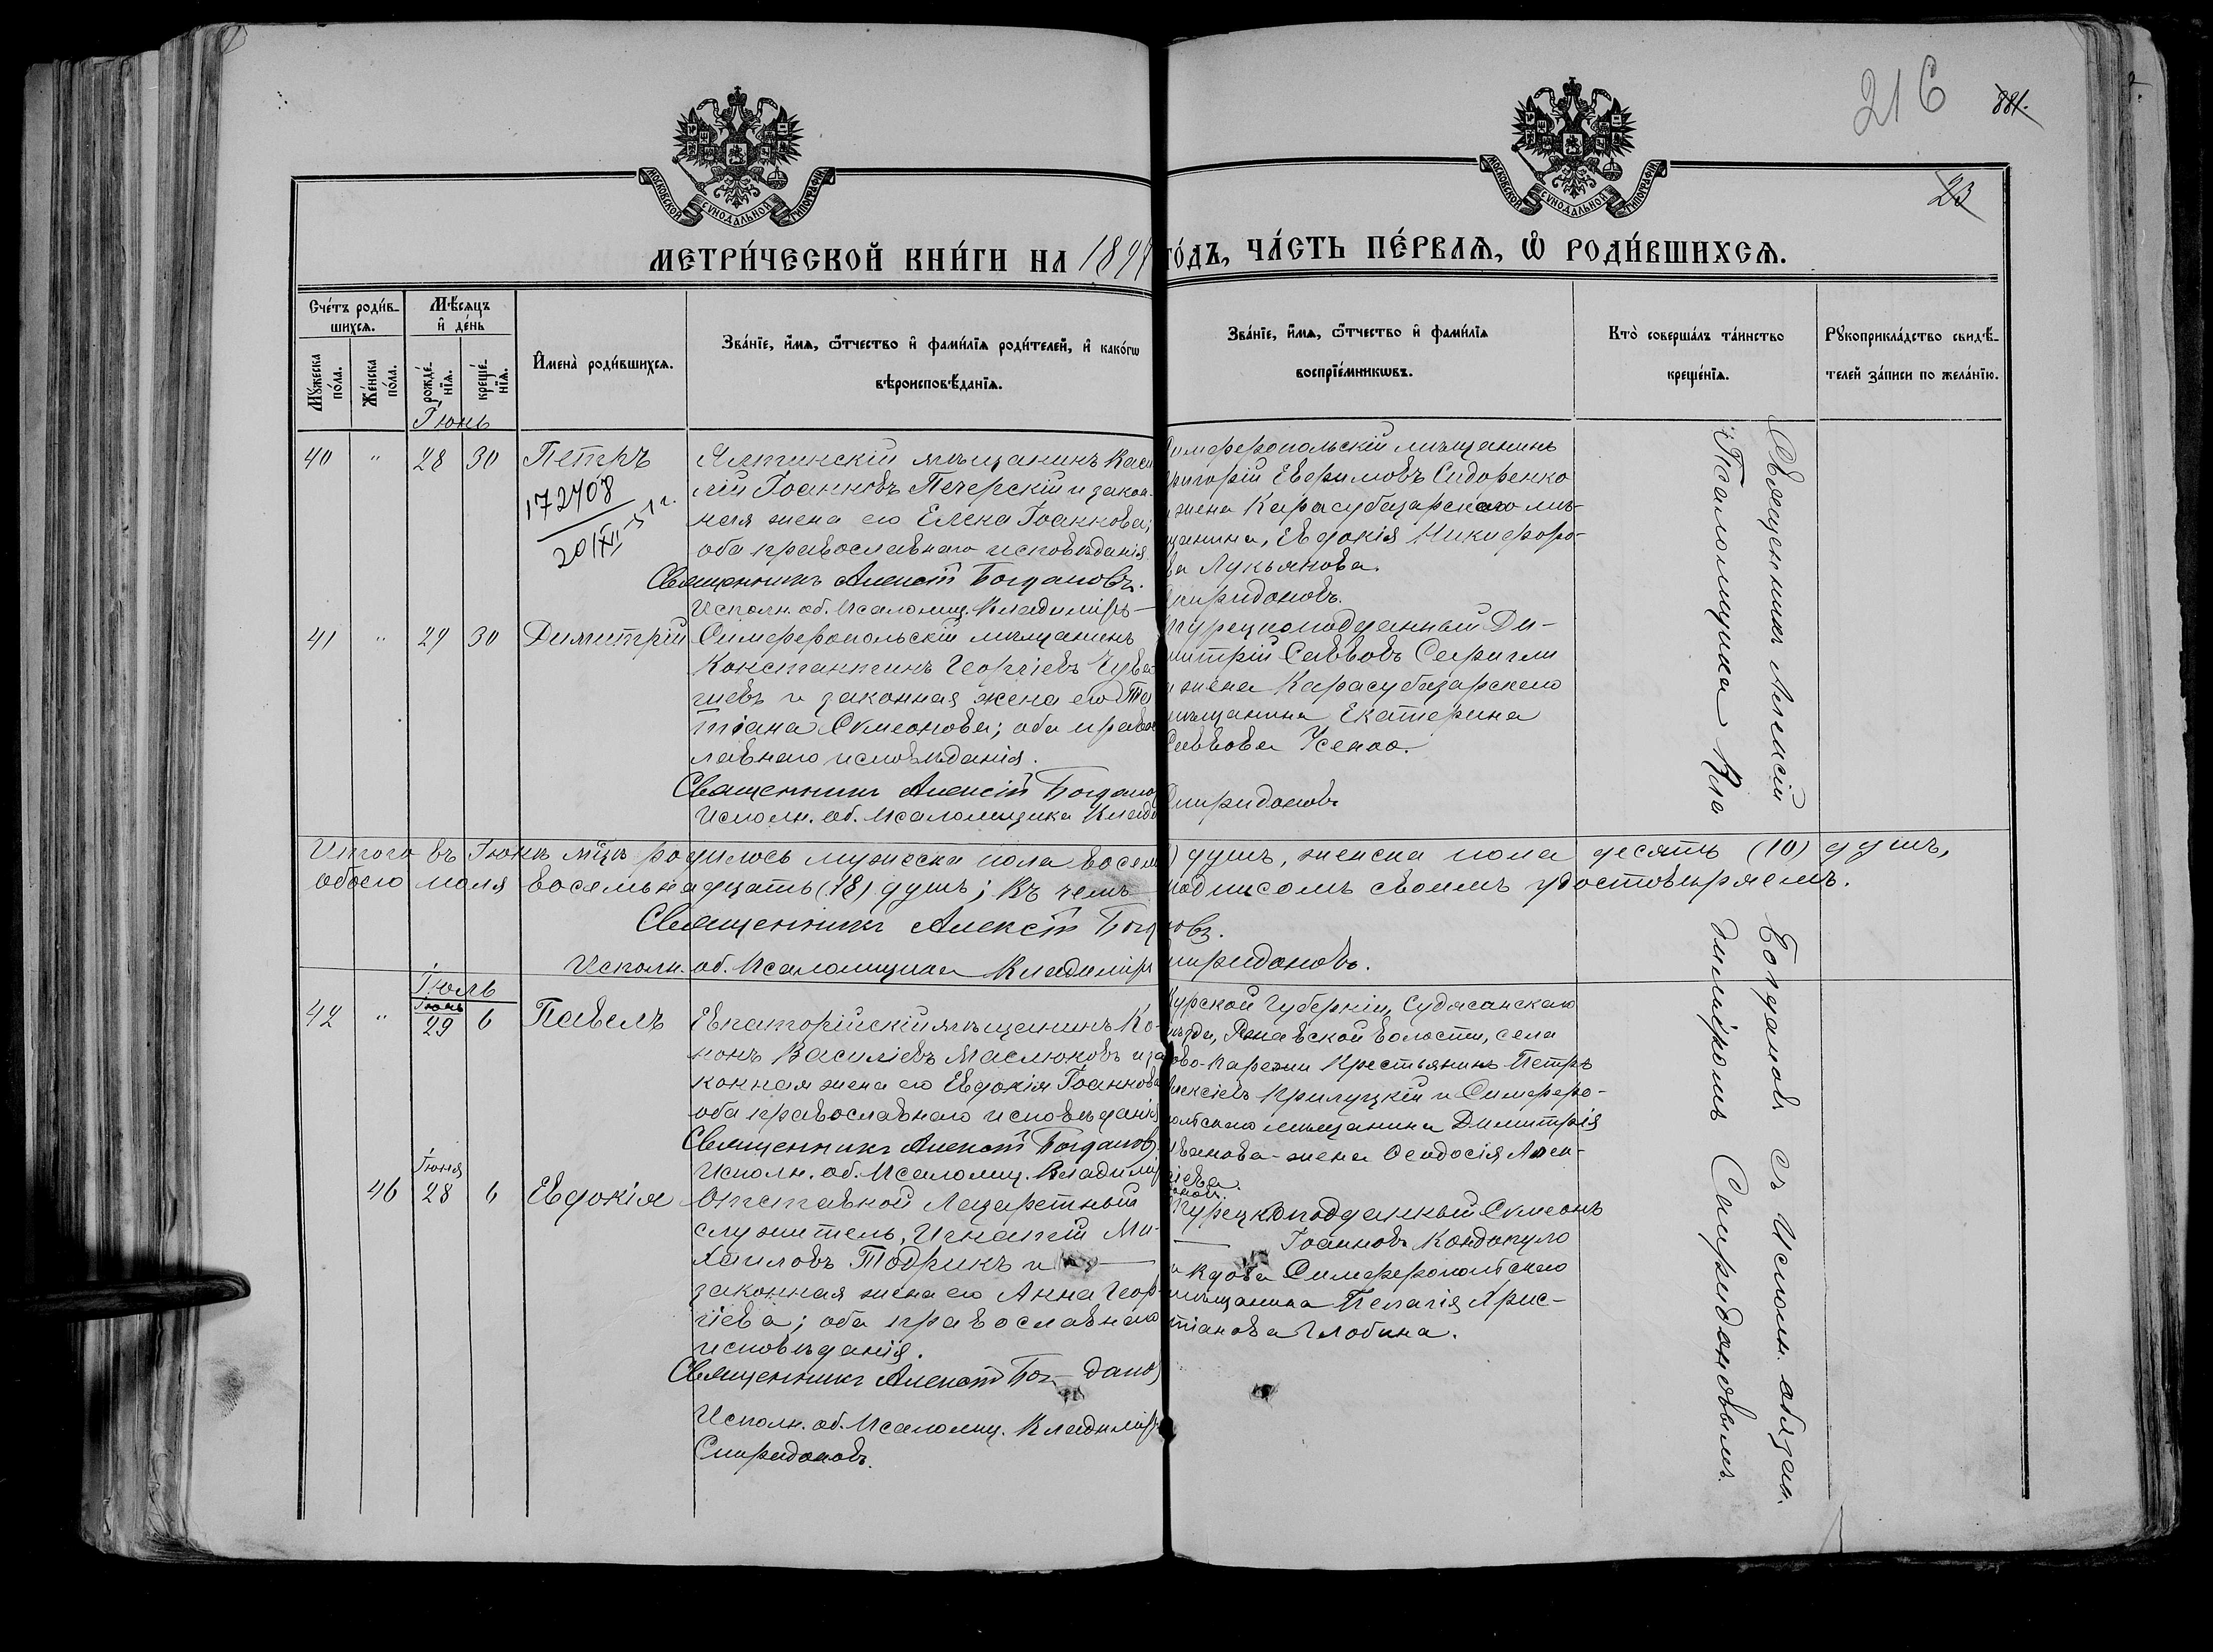 216
881.
23
МОСКОВСКОЙ СѴНОДАЛЬНОЙ ТИПОГРАФІИ
МОСКОВСКОЙ СѴНОДАЛЬНОЙ ТИПОГРАФІИ
МЕТРИ́ЧЕСКОЙ КНИ́ГИ НА 189
ГО́ДЪ, ЧА́СТЬ ПЕ́РВАѦ, Ѡ҆ РОДИ́ВШИХСѦ.
Сче́тъ роди́в-
шихсѧ.
Мꙋ́жеска по́ла.
Же́нска по́ла.
Мѣ́сѧцъ
и҆ де́нь
рожде́-
нїѧ.
креще́-
нїѧ.
И҆мена̀ роди́вшихсѧ.
Зва́нїе, и҆́мѧ, ѻ҆́тчество и҆ фами́лїѧ роди́телей, и҆ како́гѡ
вѣроисповѣ́данїѧ.
Зва́нїе, и҆́мѧ, ѻ҆́тчество и҆ фами́лїѧ
воспрїе́мникѡвъ.
Кто̀ соверша́лъ та́инство
креще́нїѧ.
Рꙋкоприкла́дство свидѣ́-
телей за́писи по жела́нїю.
Іюнь
40 " 28 30 Петръ
172408
20/XI-51 г.
Ялтинскій мѣщанинъ Васи
лій Іоанновъ Печерскій и закон-
ная жена его Елена Іоаннова;
оба православнаго исповѣданія
Священникъ Алексій Богдановъ.
Исполн. об. Псаломщ. Владиміръ
имферопольскій мѣщанинъ
ригорій Евфимовъ Сидоренко
жена Карасубазарскаго мѣ-
щанина, Евдокія Никифоро-
ва Лукьянова.
пиридоновъ.
41 " 29 30 Димитрій
Симферопольскій мѣщанинъ
Константинъ Георгіевъ Чува
гіевъ и законная жена его Та
тіана Сѵмеонова; оба правос
лавнаго исповѣданія.
Священникъ Алексій Богдано
Исполн. об. Псаломщика Влади
турецкоподданный Ди-
митрій Саввовъ Сафигли
и жена Карасубазарскаго
мѣщанина Екатерина
Саввова
Спиридоновъ
Итого въ Іюнѣ мц҃ѣ родилось мужеска пола восем
) душъ, женска пола десять (10) душъ,
обоего пола восемьнадцать (18) душъ; въ чемъ
подписомъ своимъ удостовѣряемъ.
Священникъ Алексій Богд
новъ.
Исполн. об. Псаломщика Владиміръ
пиридоновъ.
Іюль
42 " Іюнь 29 6 Павелъ
Евпаторійскій мѣщанинъ Ко-
нонъ Василіевъ Маслюковъ и за
конная жена его Евдокія Іоаннова
оба православнаго исповѣданія
Священникъ Алексій Богданов
Исполн. об. Псаломщ. Владимір
Курской Губерніи, Суджанскаго
ѣзда, волости, села
крестьянинъ Петръ
лексіевъ Прилуцкій и Симферо-
польскаго мѣщанина Димитрія
Иванова жена Ѳеодосія Алек-
сіева.
оновъ.
46 Іюня 28 6 Евдокія
Отставной Лазаретный
служитель, Игнатій Ми-
хаиловъ Тодрикъ и
законная жена его Анна Геор-
гіева; оба православнаго
исповѣданія.
Священникъ Алексій Бог-дано
Исполн. об. Псаломщ. Владимір
Спиридоновъ.
Турецкоподданный Сѵмеонъ
Іоанновъ Кондопуло
и вдова Симферопольскаго
мѣщанина Пелагія Хрис-
тіанова Глобина.
Священникъ Алексій Богдановъ съ Исполн. обязан.
Псаломщика Владиміромъ Спиридоновымъ.